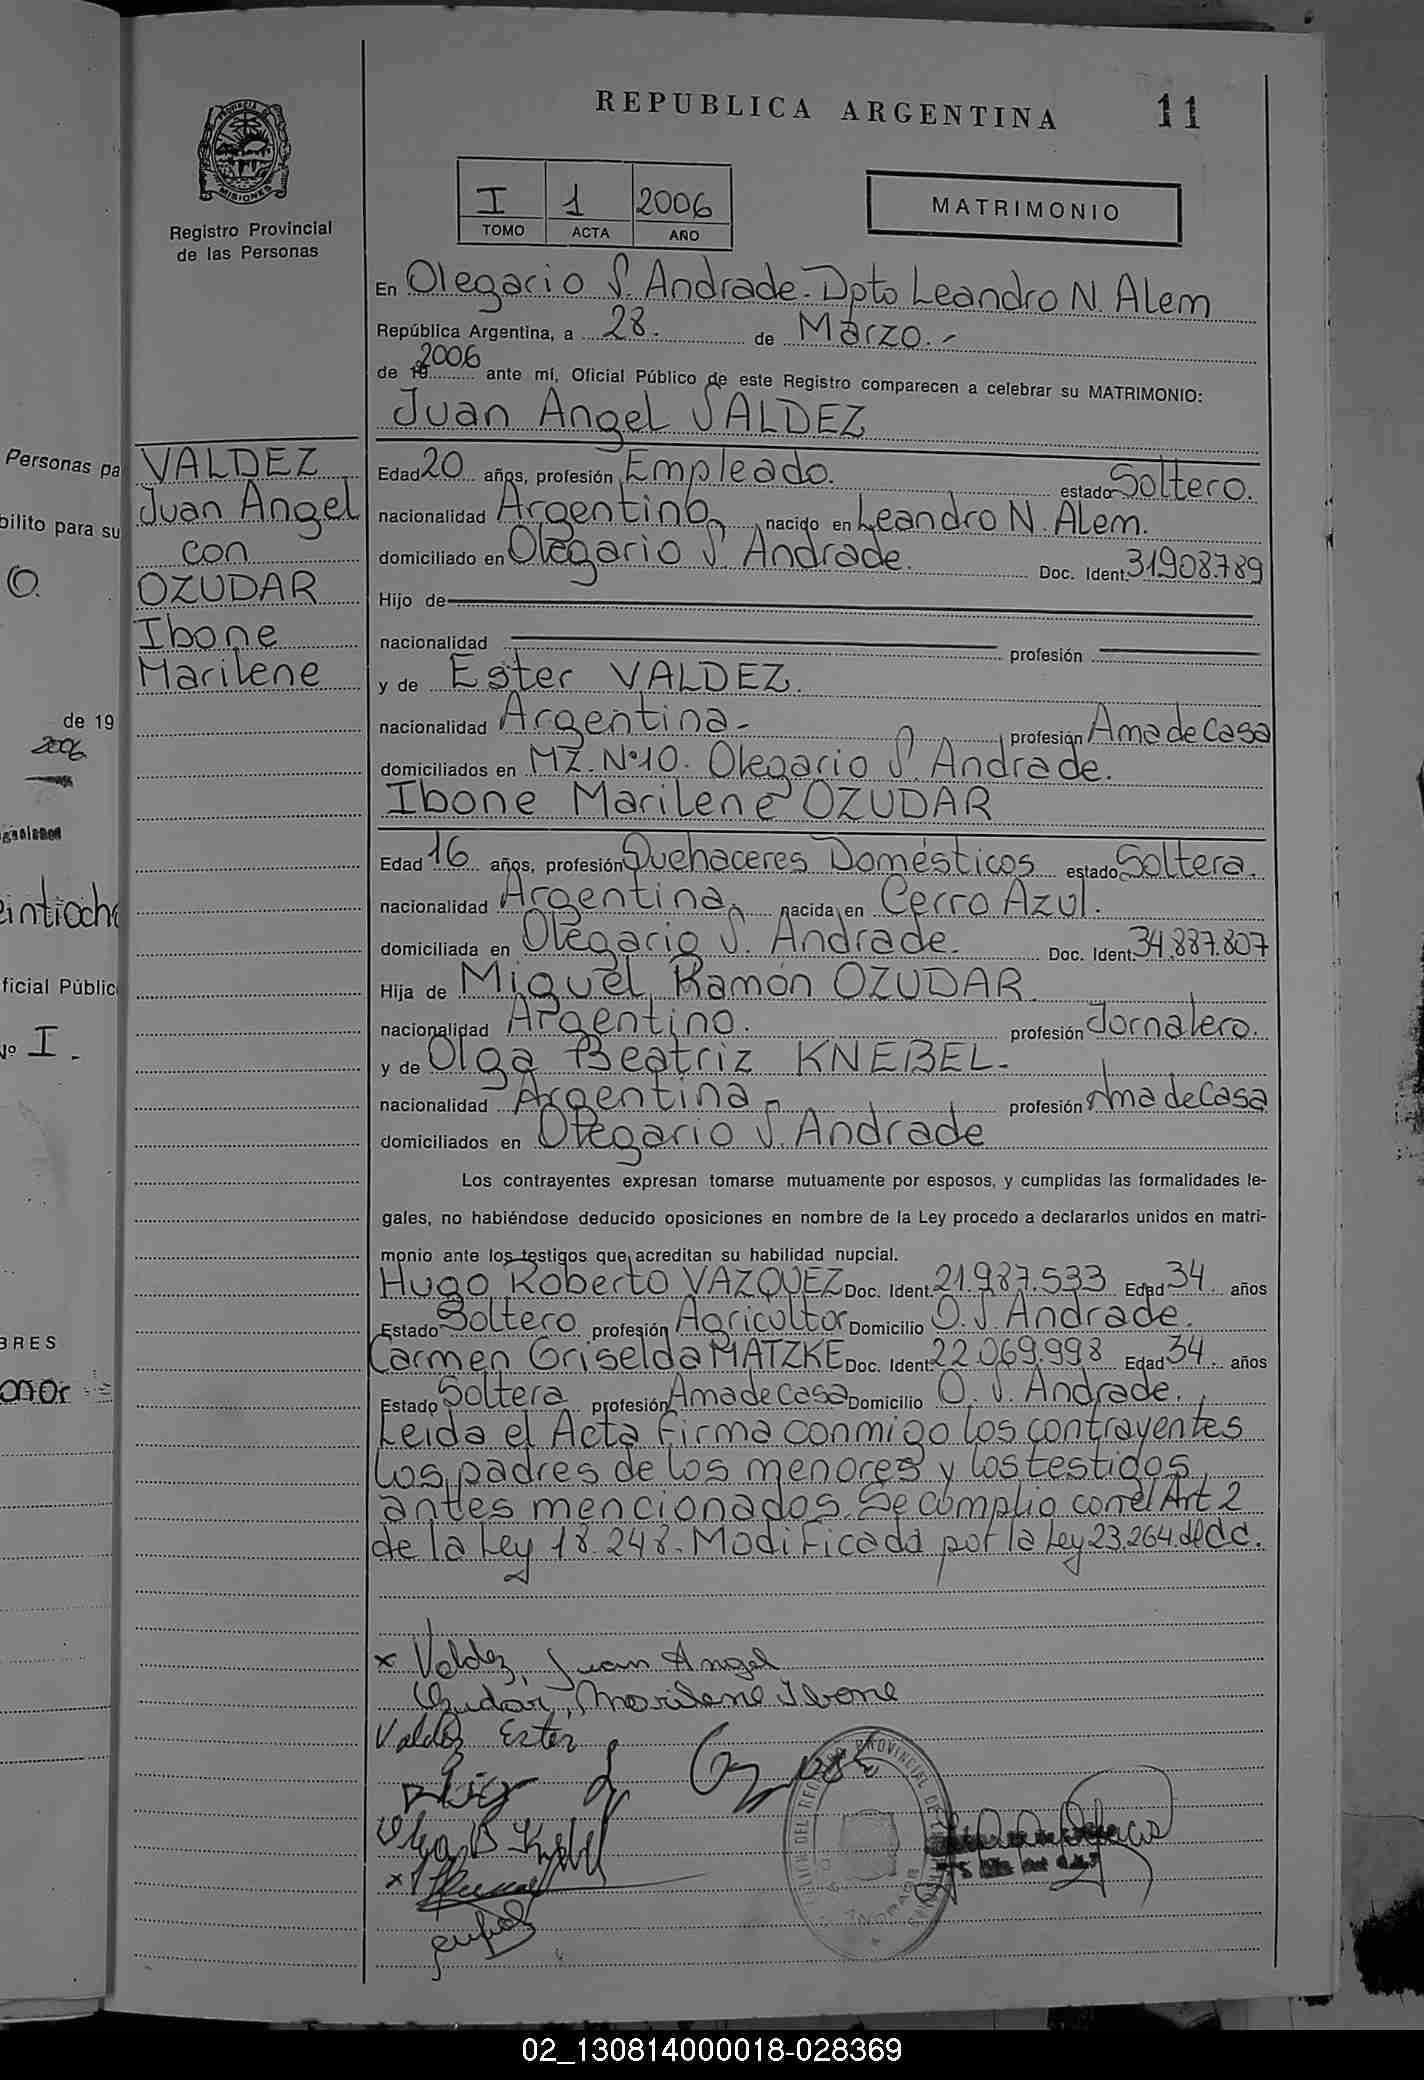 REPUBLICA ARGENTINA 11
PROVINCIA DE
MISIONES
Registro Provincial
de las Personas
I 1 2006
TOMO ACTA AÑO
MATRIMONIO
En Olegario V. Andrade - Dpto Leandro N. Alem
República Argentina, a 28. de Marzo.-
de 19 2006 ante mí, Oficial Público de este Registro comparecen a celebrar su MATRIMONIO:
Juan Angel VALDEZ
VALDEZ
Juan Angel
con
OZUDAR
Ibone
Marilene
Edad 20 años, profesión Empleado. estado Soltero.
nacionalidad Argentino, nacido en Leandro N. Alem.
domiciliado en Olegario V. Andrade. Doc. Ident. 31908.789
Hijo de
nacionalidad profesión
y de Ester VALDEZ.
nacionalidad Argentina- profesión Ama de Casa
domiciliados en MZ. Nº10. Olegario V. Andrade.
Ibone Marilene OZUDAR
Edad 16 años, profesión Quehaceres Domésticos estado Soltera.
nacionalidad Argentina. nacida en Cerro Azul.
domiciliada en Olegario V. Andrade. Doc. Ident. 34.887.807
Hija de Miguel Ramón OZUDAR.
nacionalidad Argentino. profesión Jornalero.
y de Olga Beatriz KNEBEL-
nacionalidad Argentina- profesión Ama de Casa
domiciliados en Olegario V. Andrade
Los contrayentes expresan tomarse mutuamente por esposos, y cumplidas las formalidades le-
gales, no habiéndose deducido oposiciones en nombre de la Ley procedo a declararlos unidos en matri-
monio ante los testigos que acreditan su habilidad nupcial.
Hugo Roberto VAZQUEZ Doc. Ident. 21.987.533 Edad 34 años
Estado Soltero profesión Agricultor Domicilio O. V. Andrade.
Carmen Griselda MATZKE Doc. Ident. 22.069.998 Edad 34 años
Estado Soltera profesión Ama de Casa Domicilio O. V. Andrade.
Leida el Acta firma conmigo los contrayentes
los padres de los menores y los testigos
antes mencionados. Se cumplio con el Art 2
de la Ley 18.248- Modificada por la Ley 23.264. del C.C.
x Valdez, Juan Angel
Ozudar, Marilene Ibone
Valdez Ester
Olga B Knebel
Personas pa
bilito para su
O.
de 19
2006
eintiocho
ficial Públic
Nº I.
BRES
02_130814000018-028369